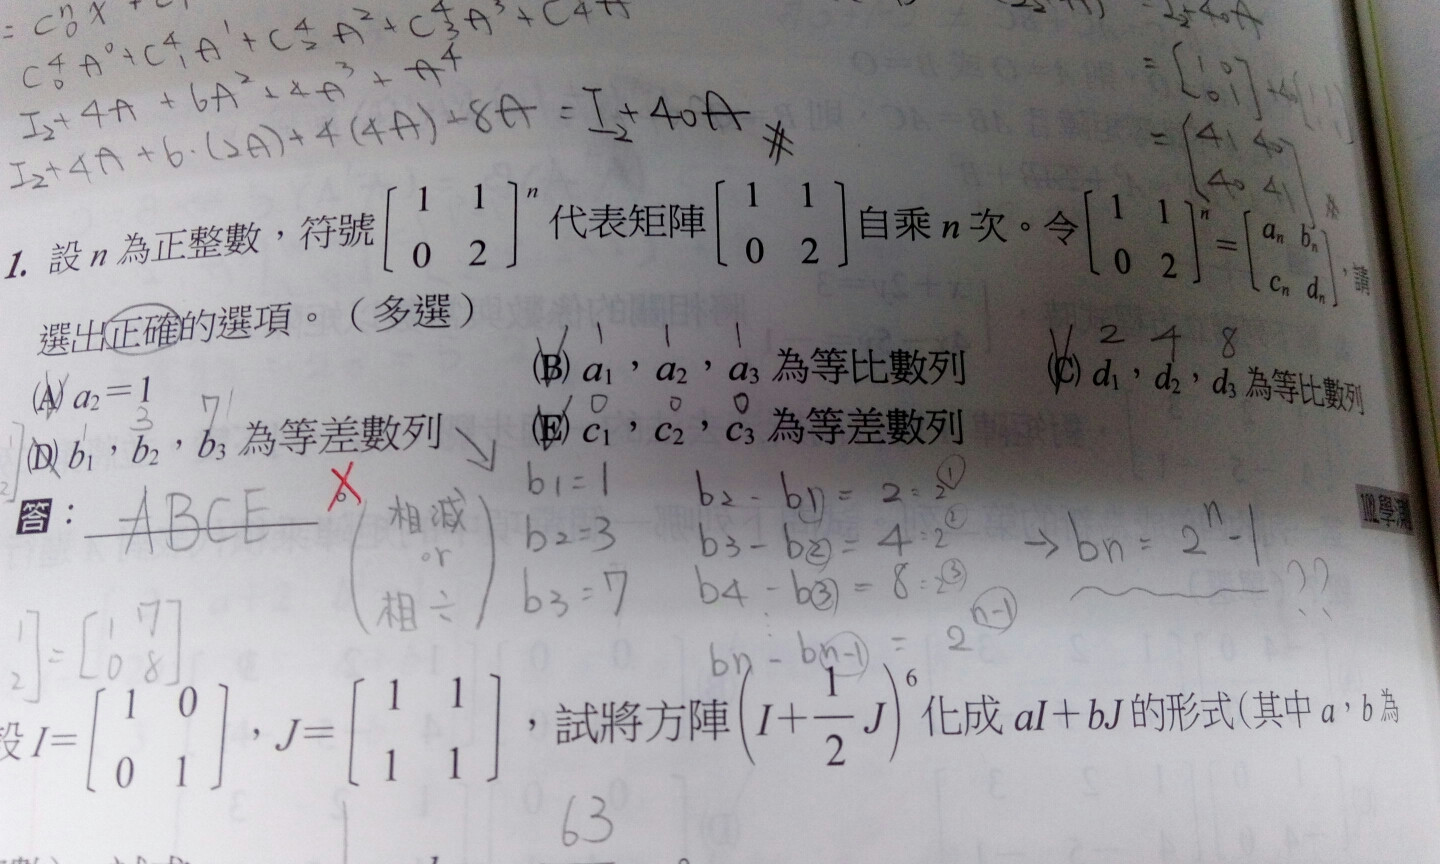 C₀⁴A⁰+C₁⁴A¹+C₂⁴A²+C₃⁴A³+C₄⁴A⁴
I₂+4A+6A²+4A³+A⁴
I₂+4A+6·(2A)+4(4A)+8A = I₂+40A #
= [1 0; 0 1]+40[1 1; 1 1]
= [41 40; 40 41] #
1. 設 n 為正整數，符號[1 1; 0 2]ⁿ 代表矩陣[1 1; 0 2]自乘 n 次。令[1 1; 0 2]ⁿ=[aₙ bₙ; cₙ dₙ]，請
選出正確的選項。（多選）
(A) a₂=1
(B) a₁，a₂，a₃ 為等比數列
1 1 1
(C) d₁，d₂，d₃ 為等比數列
2 4 8
(D) b₁，b₂，b₃ 為等差數列
1 3 7
(E) c₁，c₂，c₃ 為等差數列
0 0 0
答：ABCE
102學測
(相減 or 相÷)
b1=1
b2=3
b3=7
b2-b1=2=2①
b3-b②=4=2②
b4-b③=8=2③
⋮
bn-b(n-1)=2^(n-1)
→ bn=2ⁿ-1 ??
=[1 7; 0 8]
設 I=[1 0; 0 1]，J=[1 1; 1 1]，試將方陣(I+1/2 J)⁶ 化成 aI+bJ 的形式(其中 a，b 為
63